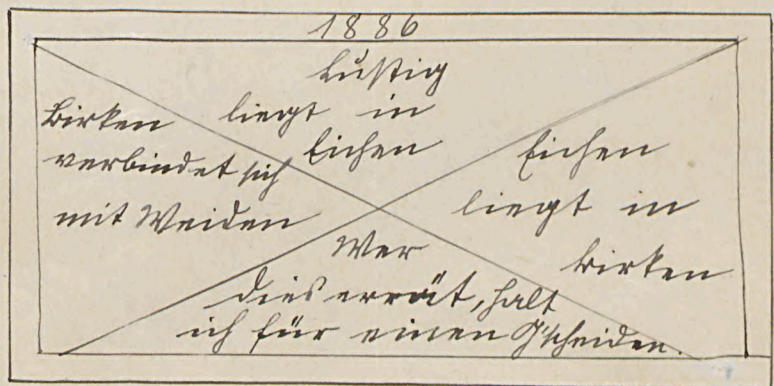 1886
Lustig
liegt in
Eichen
Birken
verbindet sich
mit Weiden
Eichen
liegt in
Birken
Wer
dies errät, halt
ich für einen G'scheiden.